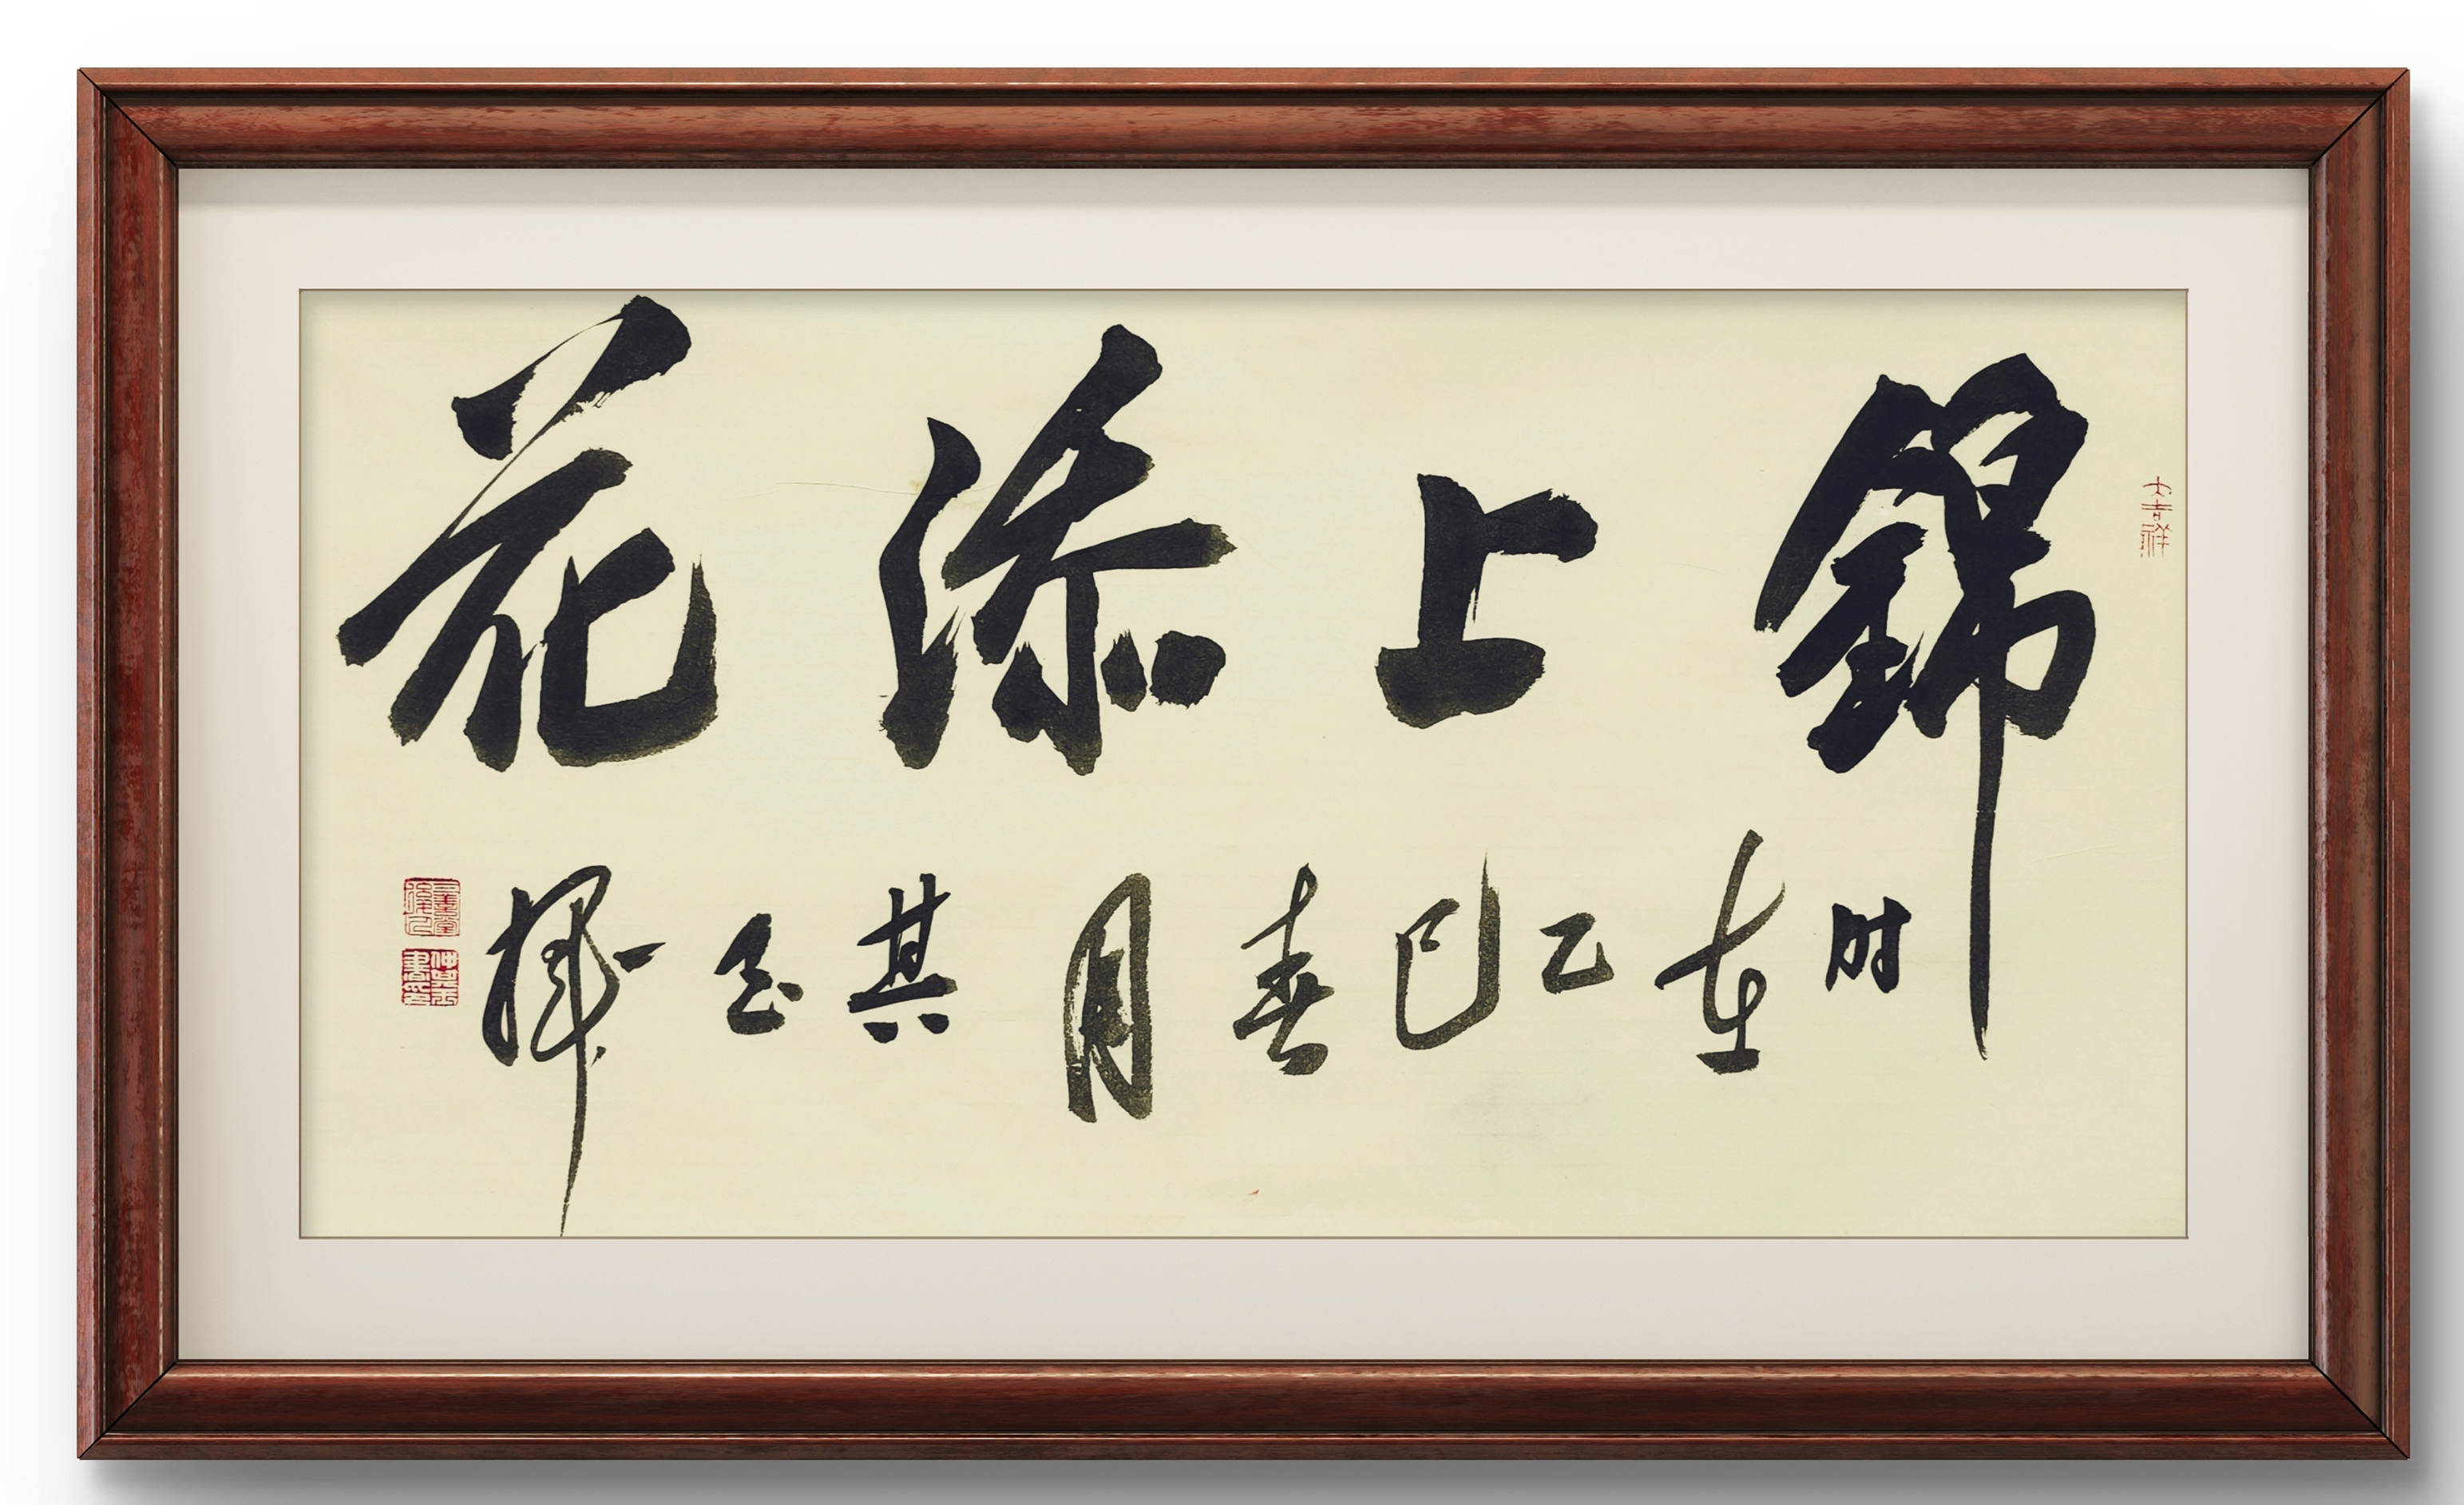 錦上添花
时在乙巳春月其玉揮
大吉祥